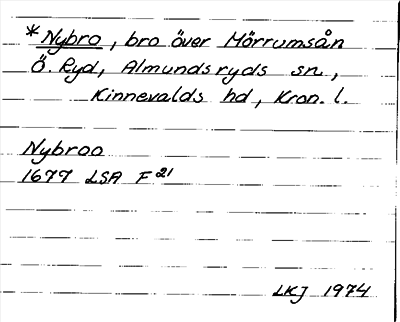 *Nybro, bro över Mörrumsån
Ö. Ryd, Almundsryds sn,
Kinnevalds hd, Kron. l.
Nybroo
1677 LSA F 21
LKJ 1974